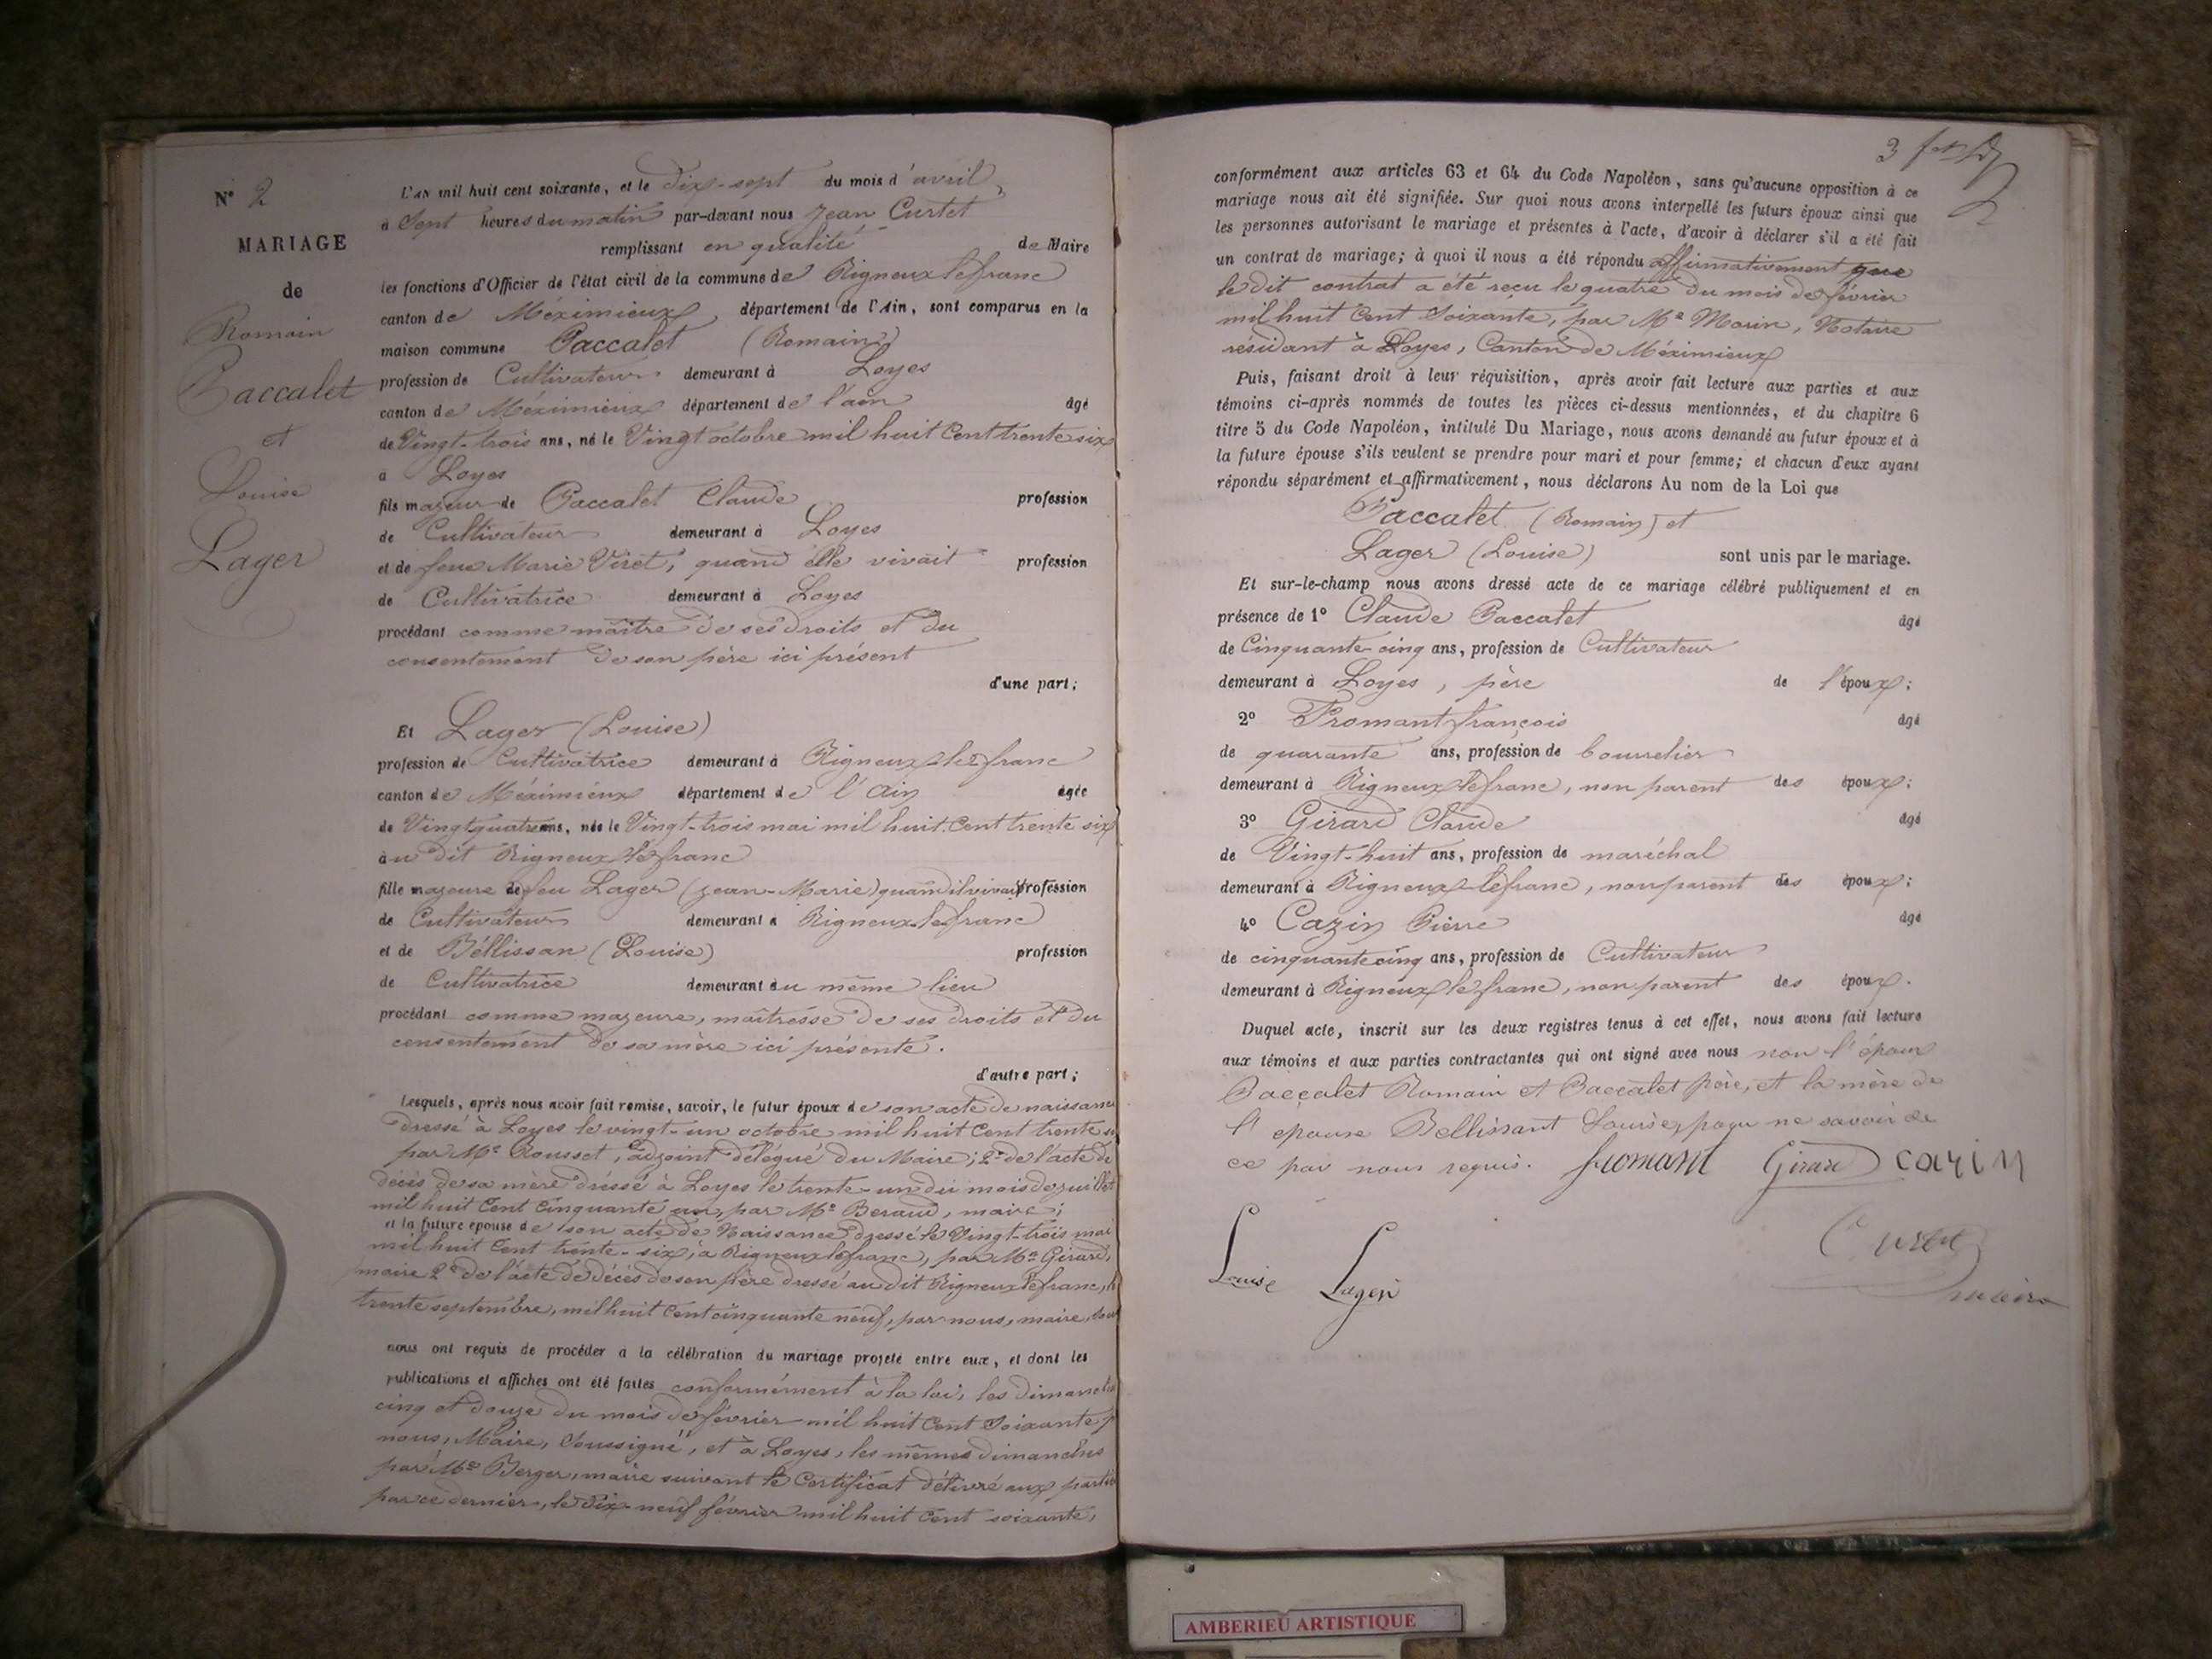 N° 2
MARIAGE
de
Romain
Paccalet
et
Louise
Lager
L'AN mil huit cent soixante, et le dix-sept du mois d'avril,
à Sept heures du matin par-devant nous Jean Curtet
remplissant en qualité de Maire
les fonctions d'Officier de l'état civil de la commune de Rigneux le franc
canton de Méximieux, département de l'Ain, sont comparus en la
maison commune Paccalet (Romain)
profession de Cultivateur demeurant à Loyes
canton de Méximieux département de l'ain âgé
de Vingt-trois ans, né le Vingt octobre mil huit Cent trente six
à Loyes
fils majeur de Paccalet Claude profession
de Cultivateur demeurant à Loyes
et de feue Marie Viret, quand elle vivait profession
de Cultivatrice demeurant à Loyes
procédant comme maître de ses droits et du
consentement de son père ici présent
d'une part;
Et Lager (Louise)
profession de Cultivatrice demeurant à Rigneux le franc
canton de Méximieux département de l'Ain âgée
de Vingt quatre ans, née le Vingt-trois mai mil huit Cent trente six
au dit Rigneux le franc
fille majeure de feu Lager (Jean-Marie) quand il vivait profession
de Cultivateur demeurant à Rigneux le franc
et de Béllissan (Louise) profession
de Cultivatrice demeurant au même lieu
procédant comme majeure, maîtresse de ses droits et du
consentement de sa mère ici présente.
d'autre part;
Lesquels, après nous avoir fait remise, savoir, le futur époux de son acte de naissance
dressé à Loyes le vingt-un octobre mil huit Cent trente
par Mr Rousset, adjoint délégué du Maire; 2° de l'acte de
décès de sa mère dressé à Loyes le trente-un du mois de juillet
mil huit Cent Cinquante un, par Mr Beraud, maire;
et la future épouse de son acte de Naissance dressé le Vingt-trois mai
mil huit Cent trente-six, à Rigneux le franc, par Mr Girard,
maire 2° de l'acte de décès de son père dressé au dit Rigneux le franc, le
trente septembre, mil huit Cent cinquante neuf, par nous, maire,
nous ont requis de procéder à la célébration du mariage projeté entre eux, et dont les
publications et affiches ont été faites conformément à la loi, les dimanches
cinq et douze du mois de février mil huit Cent Soixante
nous, Maire, Soussigné, et à Loyes, les mêmes dimanches
par Mr Berger, maire suivant le Certificat délivré aux parties
par ce dernier, le dix-neuf février mil huit Cent soixante,
3
conformément aux articles 63 et 64 du Code Napoléon, sans qu'aucune opposition à ce
mariage nous ait été signifiée. Sur quoi nous avons interpellé les futurs époux ainsi que
les personnes autorisant le mariage et présentes à l'acte, d'avoir à déclarer s'il a été fait
un contrat de mariage; à quoi il nous a été répondu affirmativement que
le dit contrat a été reçu le quatre du mois de février
mil huit Cent Soixante, par Me Morin, Notaire
résidant à Loyes, Canton de Méximieux
Puis, faisant droit à leur réquisition, après avoir fait lecture aux parties et aux
témoins ci-après nommés de toutes les pièces ci-dessus mentionnées, et du chapitre 6
titre 5 du Code Napoléon, intitulé Du Mariage, nous avons demandé au futur époux et à
la future épouse s'ils veulent se prendre pour mari et pour femme; et chacun d'eux ayant
répondu séparément et affirmativement, nous déclarons Au nom de la Loi que
Paccalet (Romain) et
Lager (Louise) sont unis par le mariage.
Et sur-le-champ nous avons dressé acte de ce mariage célébré publiquement et en
présence de 1° Claude Paccalet âgé
de Cinquante-cinq ans, profession de Cultivateur
demeurant à Loyes, père de l'époux;
2° Fromant françois âgé
de quarante ans, profession de bourrelier
demeurant à Rigneux le franc, non parent des époux;
3° Girard Claude âgé
de Vingt-huit ans, profession de maréchal
demeurant à Rigneux le franc, non parent des époux;
4° Cazin Pierre âgé
de cinquante cinq ans, profession de Cultivateur
demeurant à Rigneux le franc, non parent des époux.
Duquel acte, inscrit sur les deux registres tenus à cet effet, nous avons fait lecture
aux témoins et aux parties contractantes qui ont signé avec nous non l'époux
Paccalet Romain et Paccalet père, et la mère de
l'épouse Bellissant Louise, pour ne savoir de
ce par nous requis. fromant Girard cazin
Curtet
Louise Lager
maire
AMBERIEU ARTISTIQUE